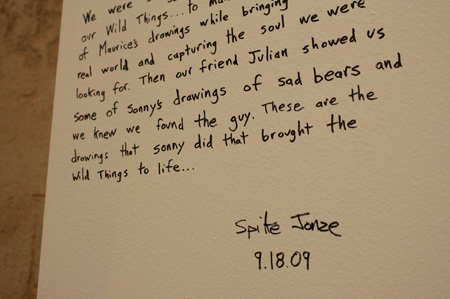 We were
our Wild Things... to
of Maurice's drawings while bringing
real world and capturing the soul we were
looking for. Then our friend Julian showed us
some of Sonny's drawings of sad bears and
we knew we found the guy. These are the
drawings that sonny did that brought the
Wild Things to life...
Spike Jonze
9.18.09